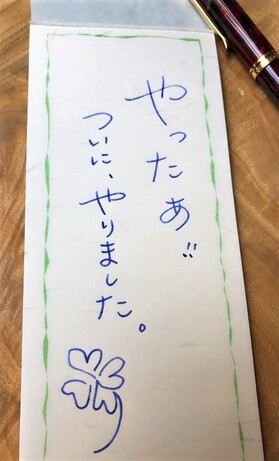 やったぁ!!
ついに、やりました。